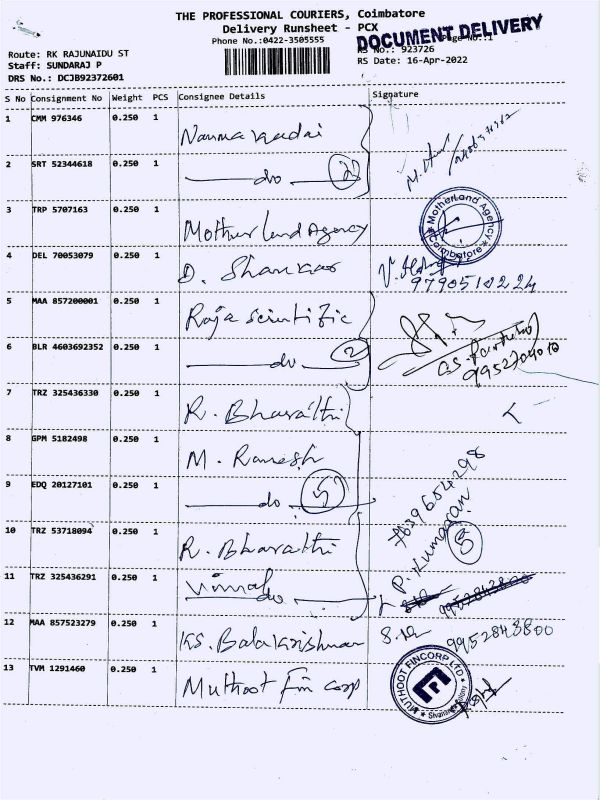 THE PROFESSIONAL COURIERS, Coimbatore
Delivery Runsheet - PCX
Phone No.:0422-3505555
DOCUMENT DELIVERY
Page No.:1
Route: RK RAJUNAIDU ST
RS No.: 923726
Staff: SUNDARAJ P
RS Date: 16-Apr-2022
DRS No.: DCJB92372601
S No Consignment No Weight PCS Consignee Details Signature
1 CMM 976346 0.250 1 Nanma Kadai
2 SRT 52344618 0.250 1 do 2
3 TRP 5707163 0.250 1 Motherland Agency
MotherLand Agency
Coimbatore
4 DEL 70053079 0.250 1 D. Shankar
9790510224
5 MAA 857200001 0.250 1 Raja scientific
6 BLR 4603692352 0.250 1 do 2
7 TRZ 325436330 0.250 1 R. Bharathi
8 GPM 5182498 0.250 1 M. Ramesh
9 EDQ 20127101 0.250 1 do 5
7639654298
P. Kumaran
5
10 TRZ 53718094 0.250 1 R. Bharathi
11 TRZ 325436291 0.250 1 Vimal do
12 MAA 857523279 0.250 1 KS. Balakrishnan
9952843800
13 TVM 1291460 0.250 1 Muthoot Fin corp
MUTHOOT FINCORP LTD